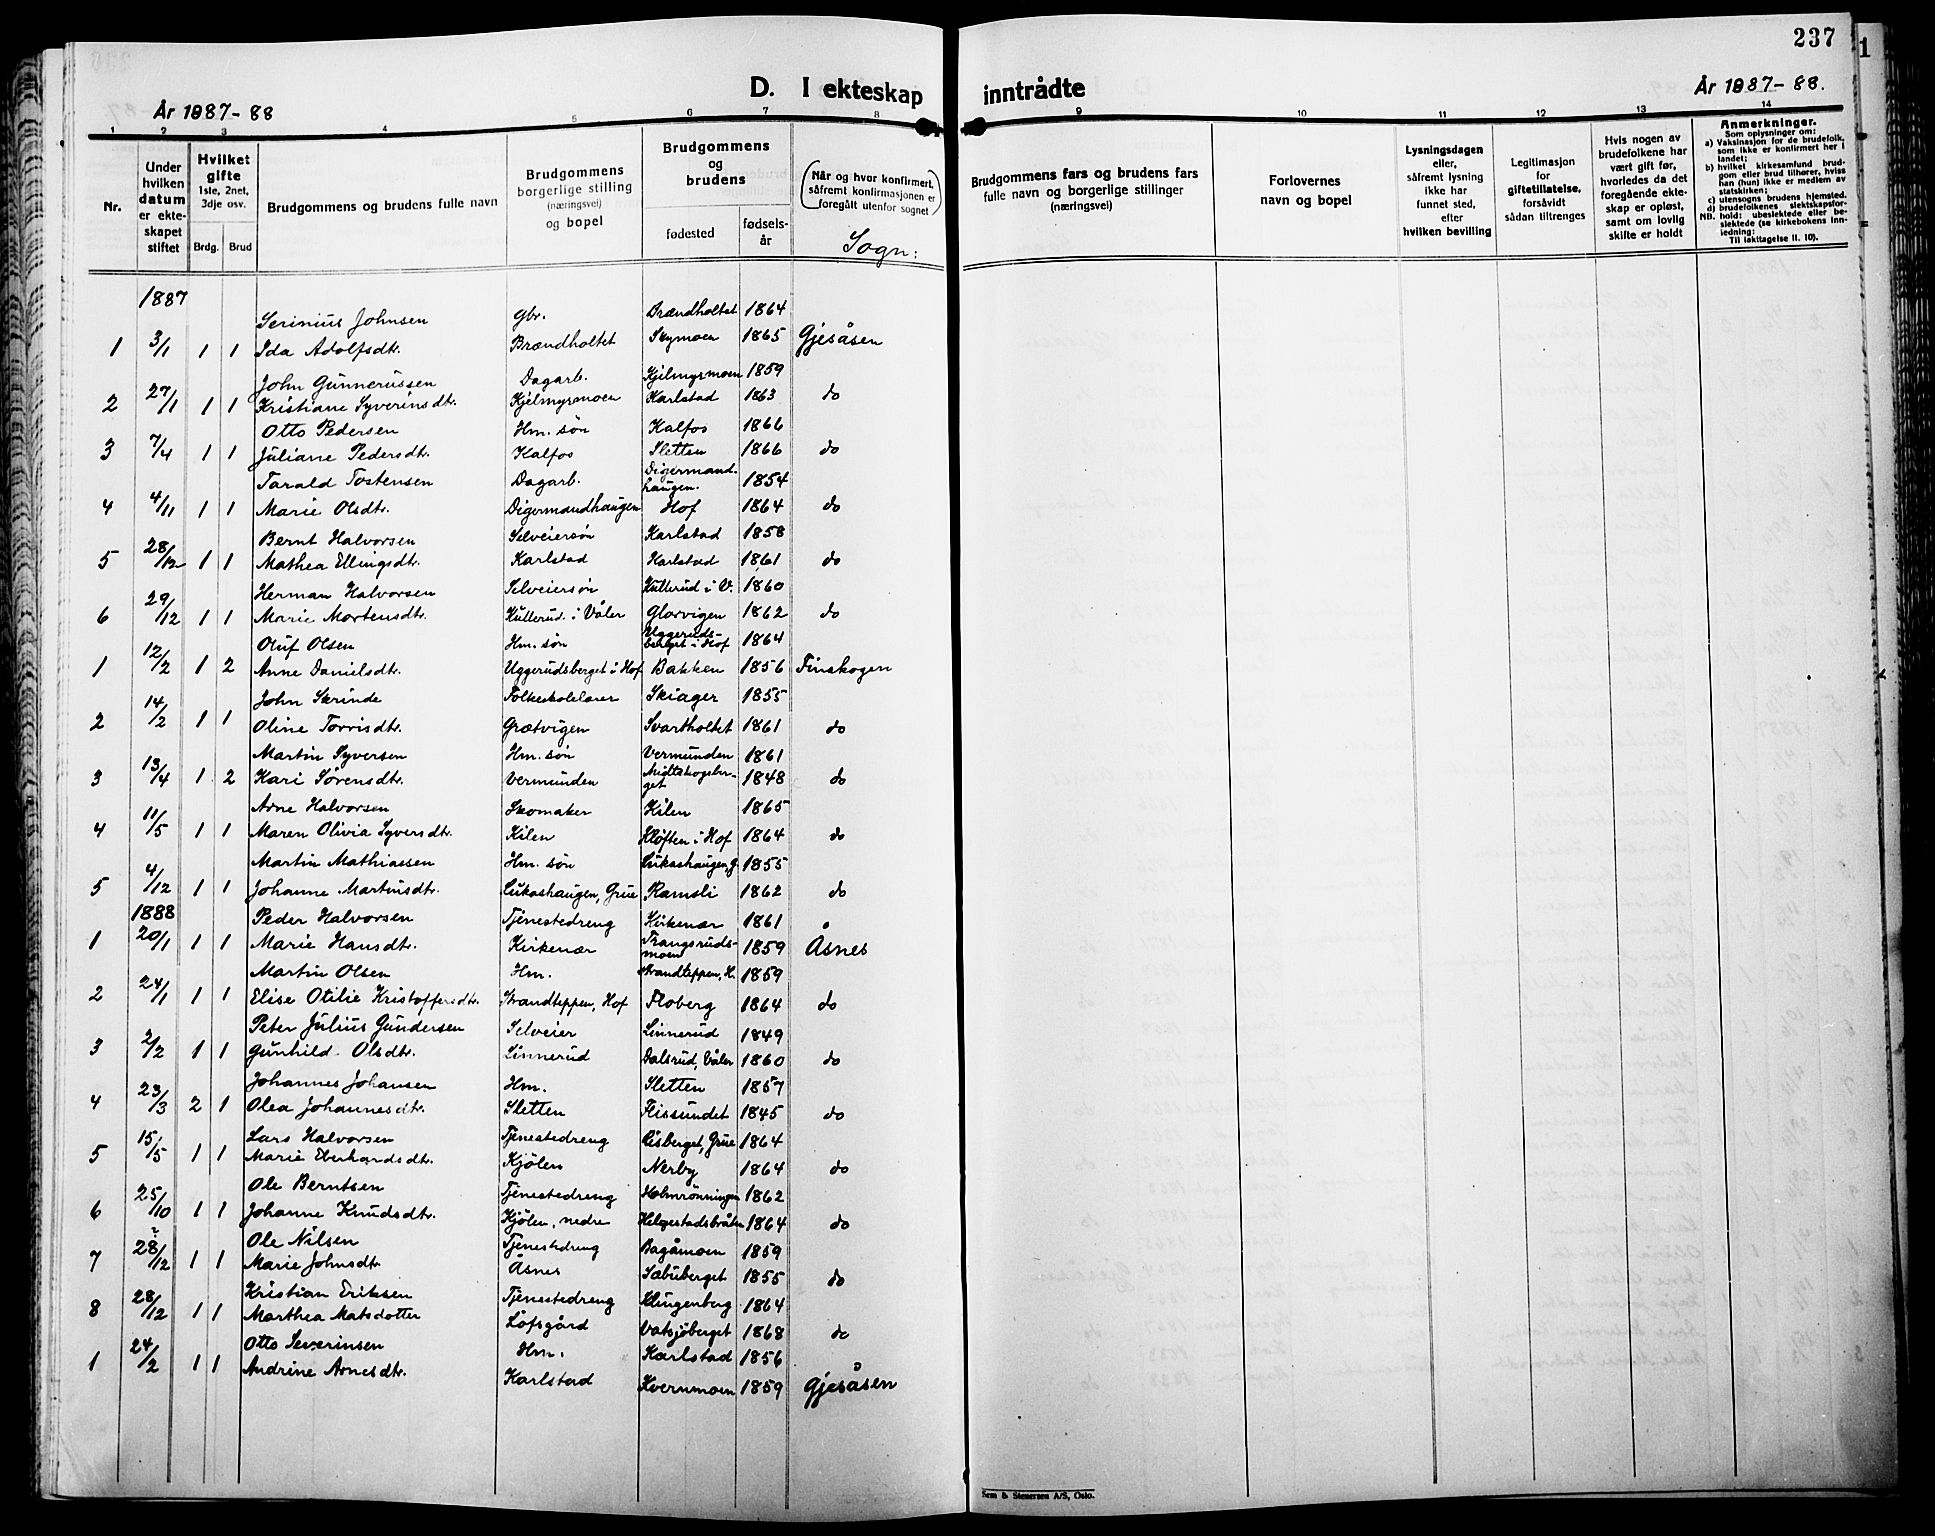 237
1
D. I ekteskap inntrådte
År 1987-88
År 1987-88.
1 2 3 4 5 6 7 8 9 10 11 12 13 14
Nr.
Under hvilken datum er ekteskapet stiftet
Hvilket gifte
1ste, 2net, 3dje osv.
Brdg. Brud
Brudgommens og brudens fulle navn
Brudgommens borgerlige stilling (næringsvei) og bopel
Brudgommens og brudens
fødested
fødselsår
(Når og hvor konfirmert, såfremt konfirmasjonen er foregått utenfor sognet)
Sogn:
Brudgommens fars og brudens fars fulle navn og borgerlige stillinger (næringsvei)
Forlovernes navn og bopel
Lysningsdagen eller, såfremt lysning ikke har funnet sted, efter hvilken bevilling
Legitimasjon for giftetillatelse, forsåvidt sådan tiltrenges
Hvis nogen av brudefolkene har vært gift før, hvorledes da det foregående ekteskap er opløst, samt om lovlig skifte er holdt
Anmerkninger.
Som oplysninger om:
a) Vaksinasjon for de brudefolk, som ikke er konfirmert her i landet;
b) hvilket kirkesamfund brudgom eller brud tilhører, hviss han (hun) ikke er medlem av statskirken;
c) utensogns brudens hjemsted.
d) brudefolkenes slektskapsforhold: ubeslektede eller beslektede (se kirkebokens innledning:
NB.
Til iakttagelse II. 10).
1887
Serinius Johnsen Gbr. Brændholtet 1864
1 3/1 1 1 Ida Adolfsdtr. Brændholtet Skymoen 1865 Gjesåsen
John Gunnerussen Dagarb. Kjelmyrsmoen 1859
2 27/1 1 1 Kristiane Syverinsdtr. Kjelmyrsmoen Karlstad 1863 do
Otto Pedersen Hm. søn Kalfos 1866
3 7/4 1 1 Juliane Pedersdtr. Kalfos Sletten 1866 do
Tarald Tostensen Dagarb. Digermandhaugen. 1854
4 4/11 1 1 Marie Olsdtr. Digermandhaugen Hof 1864 do
Bernt Halvorsen Selveiersøn Karlstad 1858
5 28/12 1 1 Mathea Ellingsdtr. Karlstad Karlstad 1861 do
Herman Halvorsen Selveiersøn Kullerud i V. 1860
6 29/12 1 1 Marie Mortensdtr. Kullerud i Våler Glorvigen 1862 do
Oluf Olsen Hm. søn Uggerudsberget i Hof 1864
1 12/2 1 2 Anne Danielsdtr. Uggerudsberget i Hof Bakken 1856 Finskogen
John Skrinde Folkeskolelærer Skiager 1855
2 14/2 1 1 Oline Torrisdtr. Grætvigen Svartholtet 1861 do
Martin Syversen Hm. søn Vermunden 1861
3 13/4 1 2 Kari Sørensdtr. Vermunden Midtskogberget 1848 do
Arne Halvorsen Skomaker Kilen 1865
4 11/5 1 1 Maren Olivia Syversdtr. Kilen Kløften i Hof 1864 do
Martin Mathiassen Hm. søn Lukashaugen, G. 1855
5 4/12 1 1 Johanne Martinsdtr. Lukashaugen, Grue Ramsli 1862 do
1888 Peder Halvorsen Tjenestedreng Kirkenær 1861
1 20/1 1 1 Marie Hansdtr. Kirkenær Trangsrudsmoen 1859 Åsnes
Martin Olsen Hm. Strandteppen, H. 1859
2 24/1 1 1 Elise Otilie Kristoffersdtr. Strandteppen, Hof Floberg 1864 do
Peter Julius Gundersen Selveier Linnerud 1849
3 2/2 1 1 Gunhild Olsdtr. Linnerud Dalsrud, Våler 1860 do
Johannes Johansen Hm. Sletten 1857
4 23/3 2 1 Olea Johannesdtr. Sletten Flissundet 1845 do
Lars Halvorsen Tjenestedreng Risberget, Grue 1864
5 15/5 1 1 Marie Eberhardsdtr. Kjølen Nerby 1864 do
Ole Berntsen Tjenestedreng Holmrønningen 1862
6 25/10 1 1 Johanne Knudsdtr. Kjølen, nedre Helgestadsbråten 1864 do
Ole Nilsen Tjenestedreng Bagåmoen 1859
7 28/12 1 1 Marie Johnsdtr Åsnes Sæbuberget 1855 do
Kristian Eriksen Tjenestedreng Klingenberg 1864
8 28/12 1 1 Marthea Matsdotter Løfsgård Vatsjøberget 1868 do
Otto Severinsen Hm. Karlstad 1856
1 24/2 1 1 Andrine Arnesdtr. Karlstad Kvernmoen 1859 Gjesåsen
Sem & Stenersen A/S, Oslo.